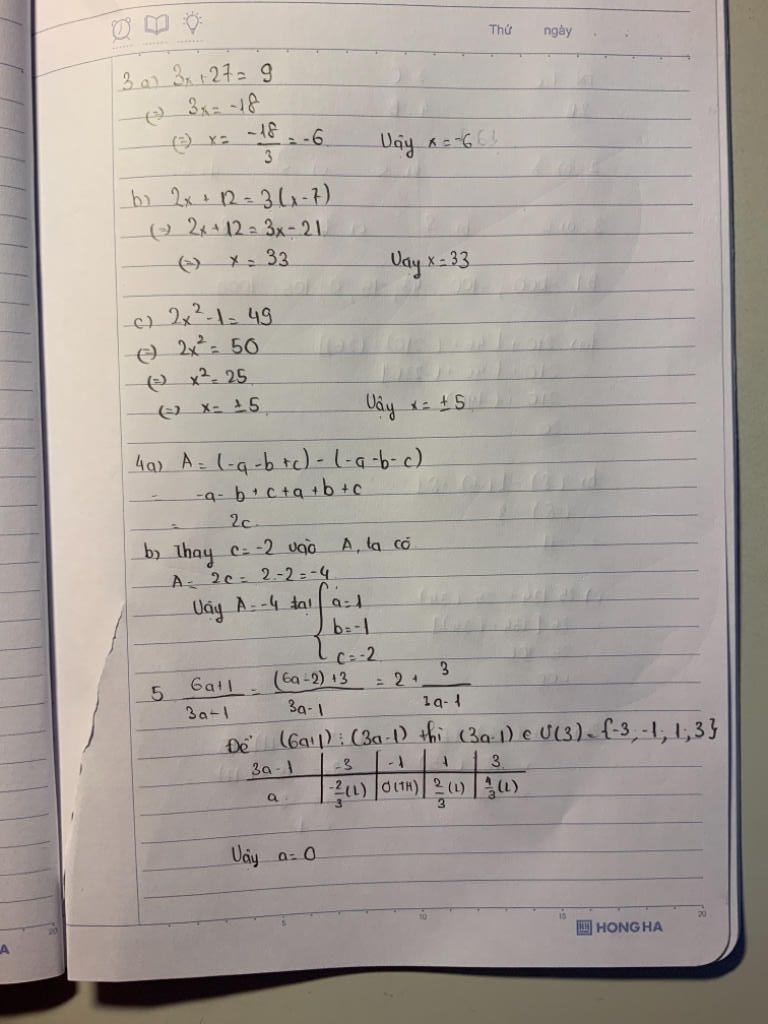 Thứ ngày
3 a) 3x+27= 9
(=) 3x= -18
(=) x= -18/3 = -6 Vậy x=-6
b) 2x + 12 = 3(x-7)
(=) 2x+12=3x-21
(=) x = 33 Vay x=33
c) 2x²-1= 49
(=) 2x² = 50
(=) x²= 25
(=) x= ±5 Vậy x= ±5
4a) A= (-a-b+c)-(-a-b-c)
= -a- b + c + a + b + c
= 2c
b) Thay c= -2 vào A, ta có
A= 2c= 2.-2=-4
Vậy A=-4 tại { a=1
b=-1
c=-2
5 6a+1/3a-1 = (6a-2)+3/3a-1 = 2 + 3/3a-1
Để (6a+1) ⋮ (3a-1) thì (3a-1) ∈ Ư(3) = {-3; -1; 1; 3}
3a-1 | -3 | -1 | 1 | 3
a | -2/3 (L) | 0(TM) | 2/3 (L) | 4/3 (L)
Vậy a=0
5 10 15 20
HONG HA
20
A